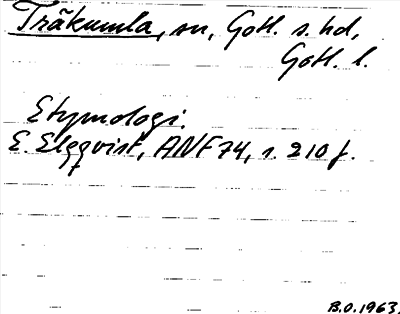 Träkumla, sn, Gotl. s. hd,
Gotl. l.
Etymologi.
E. Elgqvist, ANF 74, s. 210 f.
B.O. 1963.